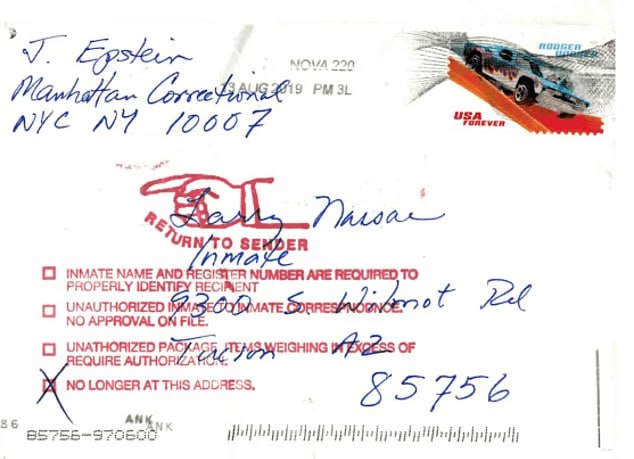 J. Epstein
Manhattan Correctional
NYC NY 10007
NOVA 220
13 AUG 2019 PM 3L
RODGER DODGER
USA
FOREVER
Larry Nassar
RETURN TO SENDER
Inmate
INMATE NAME AND REGISTER NUMBER ARE REQUIRED TO
PROPERLY IDENTIFY RECIPIENT
9300 S. Wilmot Rd
UNAUTHORIZED INMATE TO INMATE CORRESPONDENCE.
NO APPROVAL ON FILE.
UNATHORIZED PACKAGE, ITEMS WEIGHING IN EXCESS OF
REQUIRE AUTHORIZATION.
Tucson AZ
NO LONGER AT THIS ADDRESS.
85756
86
ANK
ANK
85756-970600